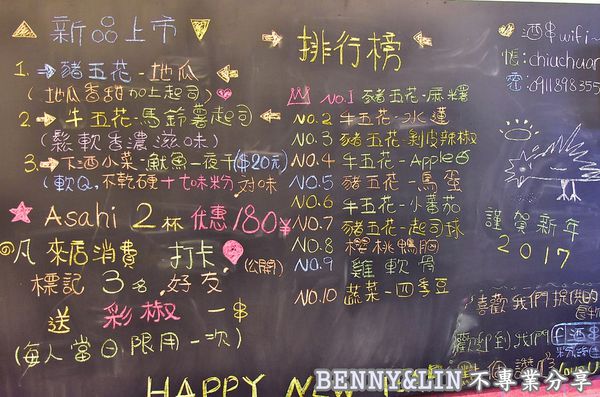 新品上市
1. 豬五花-地瓜
(地瓜香甜加上起司)
2. 牛五花-馬鈴薯起司
(鬆軟香濃滋味)
3. 下酒小菜-魷魚一夜干($20元)
(軟Q,不乾硬+七味粉,對味)
Asahi 2杯優惠180
凡來店消費 打卡(公開)
標記3名好友
送 彩椒 一串
(每人當日限用一次)
排行榜
NO.1 豬五花-麻糬
NO.2 牛五花-水蓮
NO.3 豬五花-剝皮辣椒
NO.4 牛五花-Apple
NO.5 豬五花-馬蛋
NO.6 牛五花-小蕃茄
NO.7 豬五花-起司球
NO.8 櫻桃鴨胸
NO.9 雞軟骨
NO.10 蔬菜-四季豆
酒串wifi~
帳:chiuchuan
密:0911898355
謹賀新年
2017
喜歡我們提供的
歡迎到我們 f 酒串
HAPPY NEW
BENNY&LIN 不專業分享